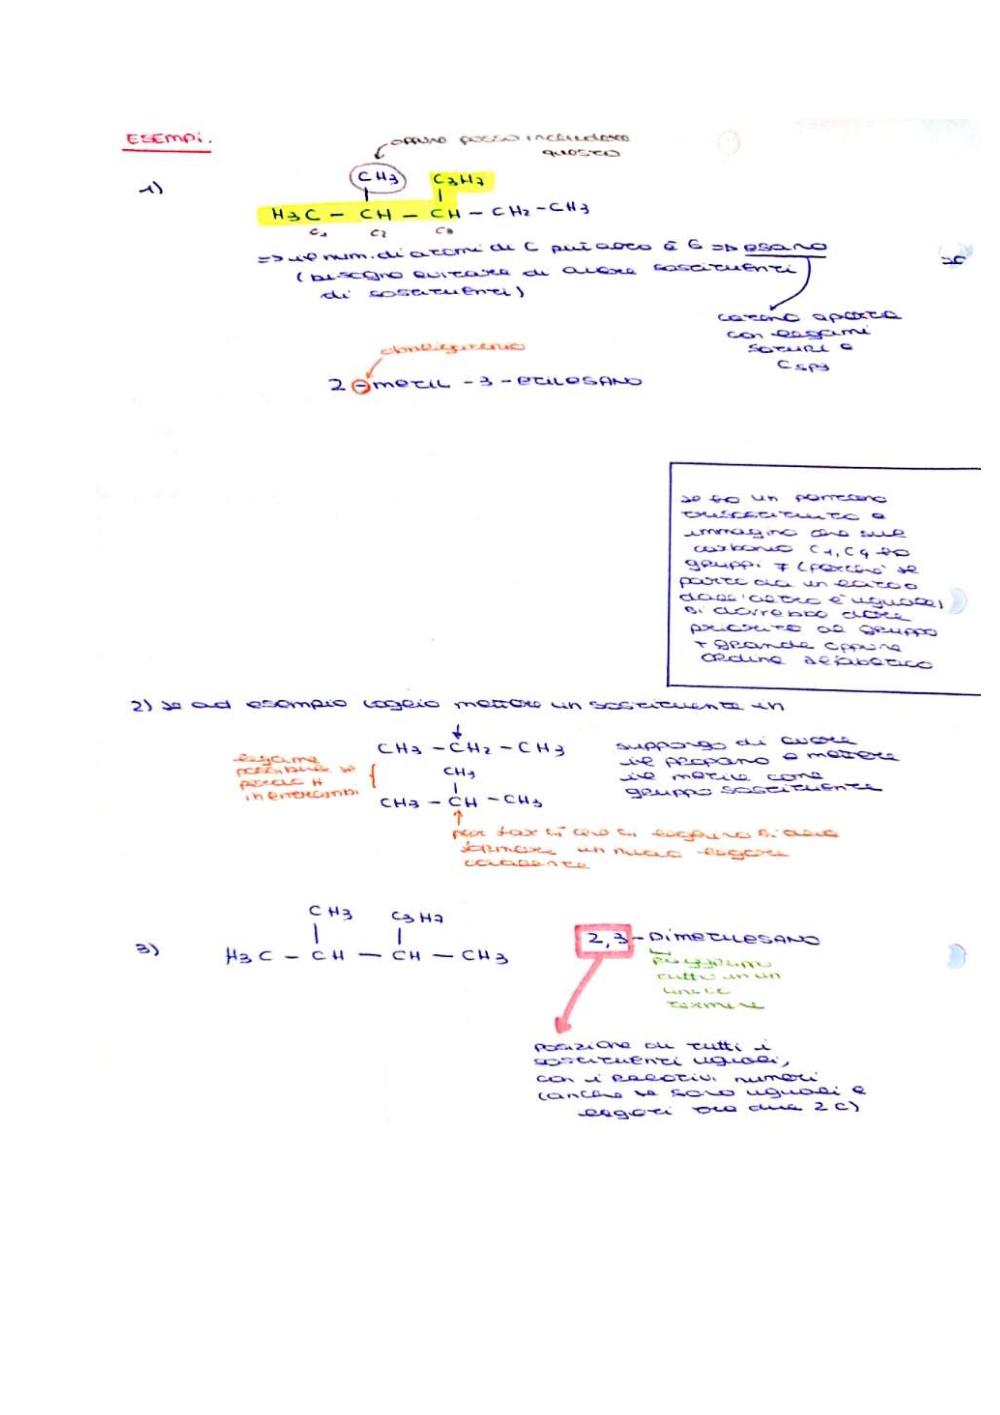 ESEMPI.
oppure posso includere
questo
1)
CH3 C3H7
H3C - CH - CH - CH2 - CH3
C1 C2 C3
=> il num. di atomi di C più alto è 6 => esano
(bisogna evitare di avere sostituenti
di sostituenti)
catena aperta
con legami
saturi e
Csp3
obbligatorio
2-metil-3-etilesano
se ho un pentano
trisostituito e
immagino che sul
carbonio C2, C4 ho
gruppi ≠ (perché se
parti da un lato o
dall'altro è uguale)
si dovrebbe dare
priorità al gruppo
+ grande oppure
ordine alfabetico
2) se ad esempio voglio mettere un sostituente in
CH3 - CH2 - CH3
CH3
CH3 - CH - CH3
legame
possibile se
perdo H
in entrambi
suppongo di avere
il propano e mettere
il metile come
gruppo sostituente
per far sì che si leghino si deve
formare un nuovo legame
covalente
3)
CH3 C3H7
H3C - CH - CH - CH3
2,3-Dimetilesano
raggruppo
tutto in un
unico
termine
posizione di tutti i
sostituenti uguali,
con i relativi numeri
(anche se sono uguali e
legati tra due 2 C)